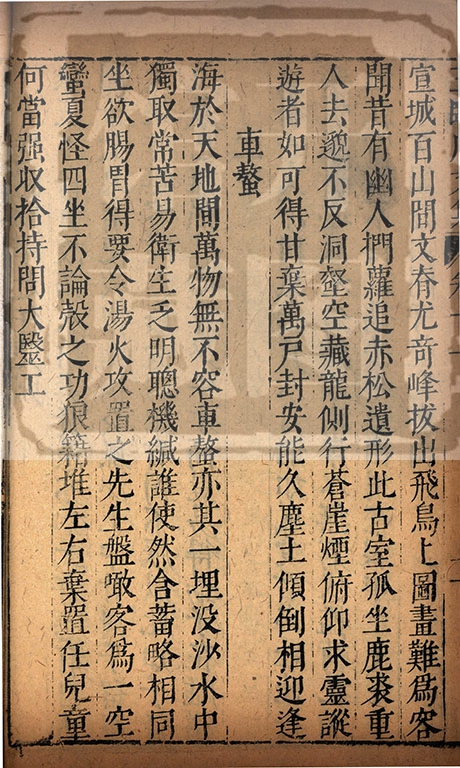 宣城百山間文脊尤奇峰拔出飛鳥上圖畫難爲客
聞昔有幽人捫蘿追赤松遺形此古室孤坐鹿裘重
人去邈不反洞壑空藏龍側行蒼崖煙俯仰求靈蹤
遊者如可得甘棄萬戸封安能久塵土傾倒相迎逢
車螯
海於天地間萬物無不容車螯亦其一埋没沙水中
獨取常苦易衛生乏明聰機緘誰使然含蓄略相同
坐欲腸胃得要令湯火攻置之先生盤噉客爲一空
蠻夏怪四坐不論殼之功狼籍堆左右棄置任兒童
何當强收拾持問大醫工